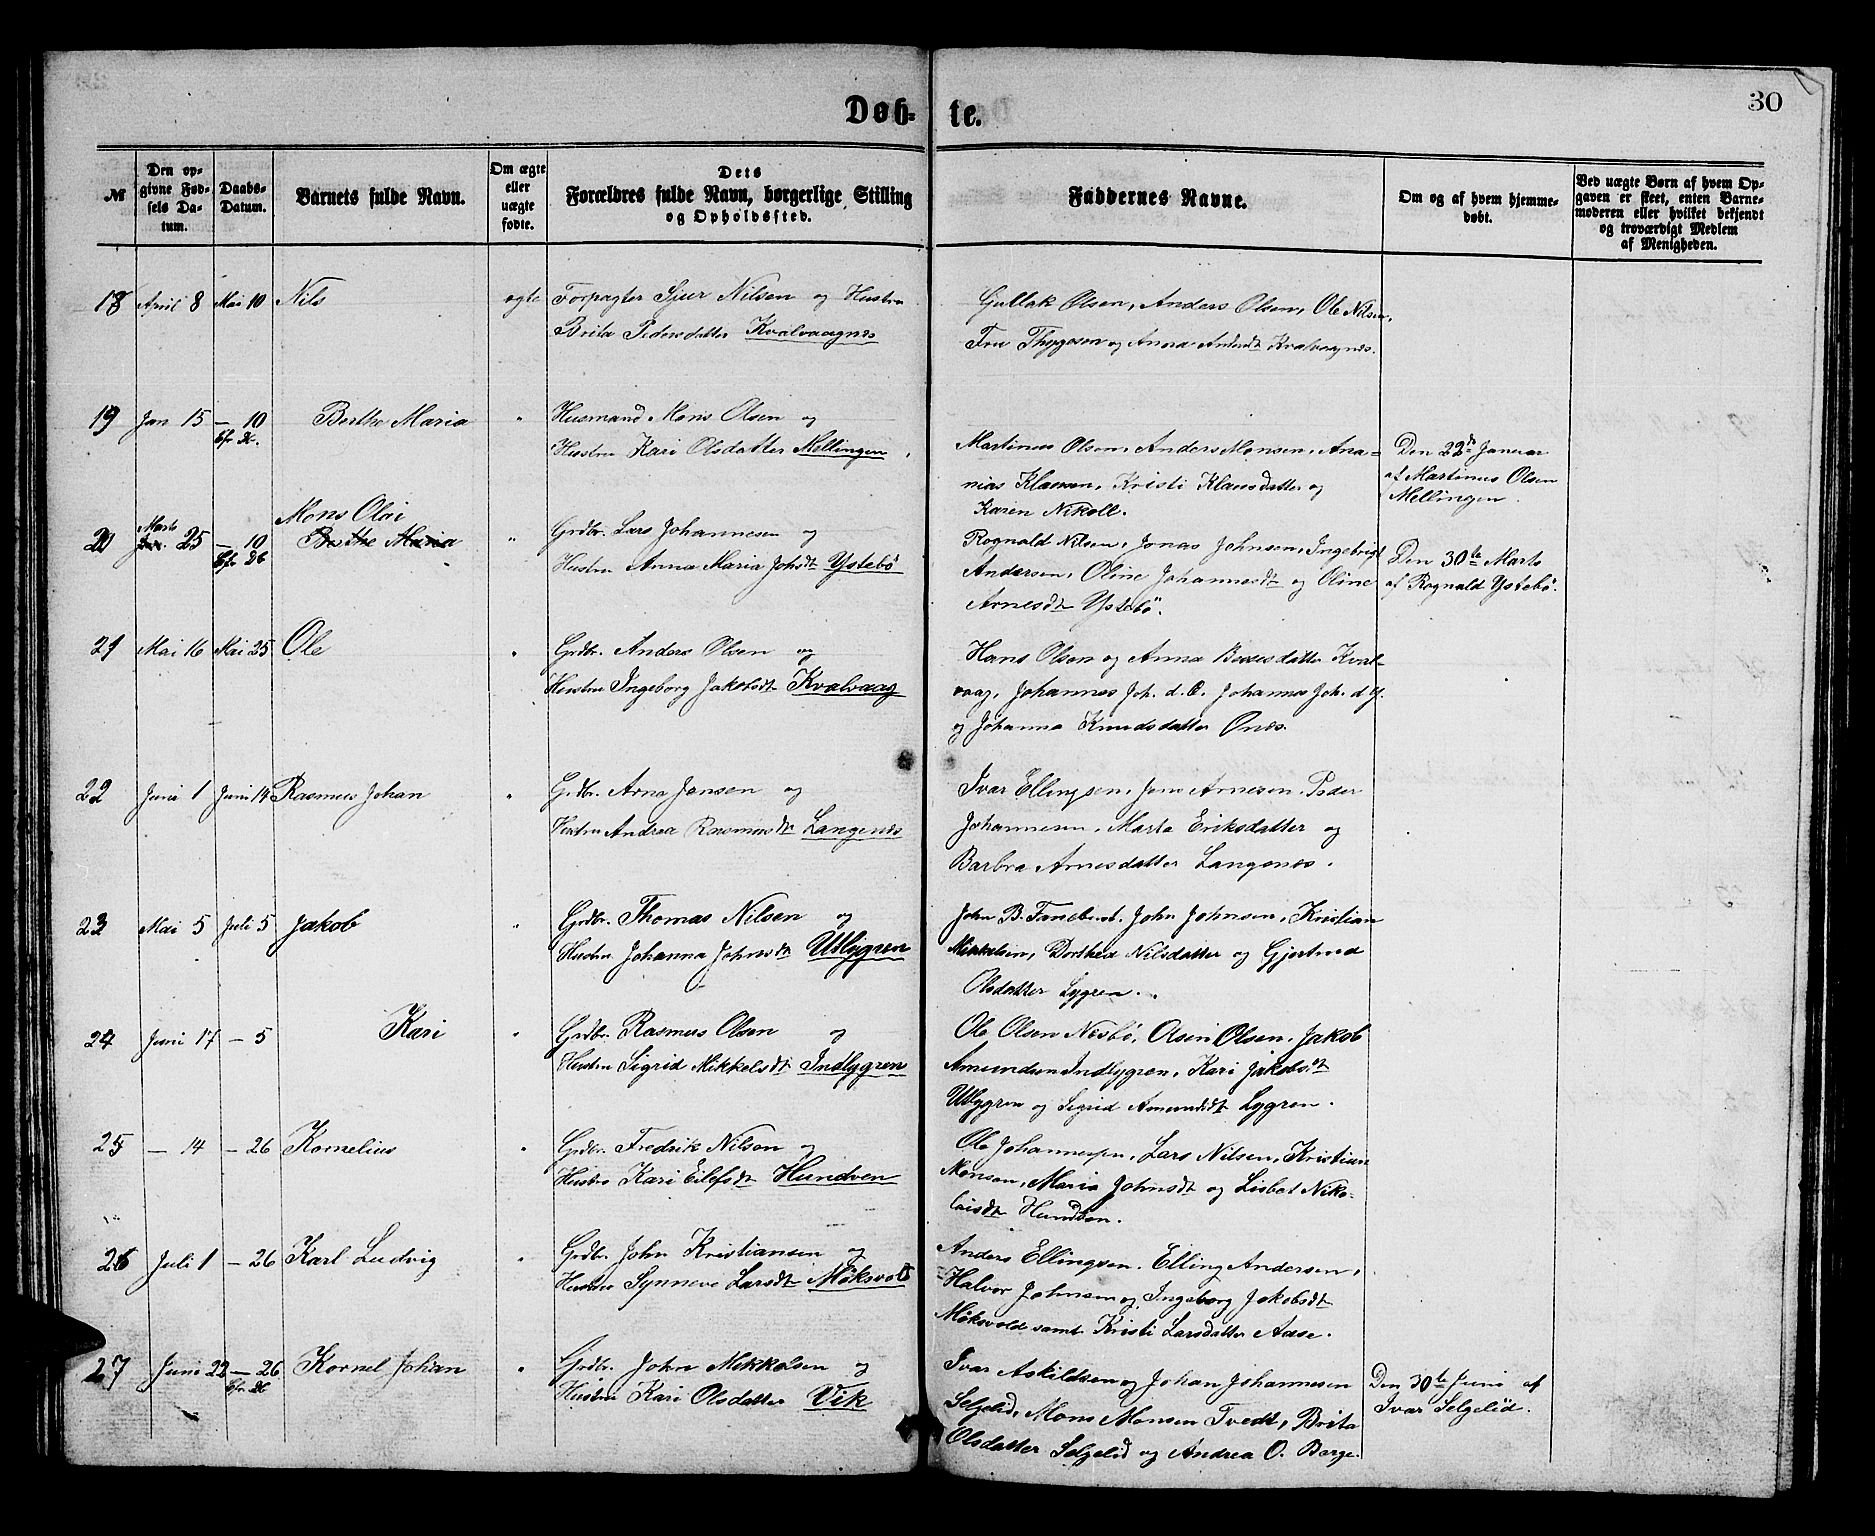 Døb-te.
30
№
Den op-
givne Fød-
sels Da-
tum.
Daabs-
Datum.
Barnets fulde Navn.
Om ægte
eller
uægte
fødte.
Dets
Forældres fulde Navn, borgerlige Stilling
og Opholdssted.
Faddernes Navne.
Om og af hvem hjemme-
døbt.
Ved uægte Børn af hvem Op-
gaven er skeet, enten Barne-
moderen eller hvilket bekjendt
og troværdigt Medlem
af Menigheden.
18 April 8 Mai 10 Nils ægte Forpagter Sjur Nilsen og Hustru
Brita Pedersdatter Kvalvaagnes
Gullak Olsen, Anders Olsen, Ole Nilsen,
Fru Thygesen og Anna Andersdt Kvalvaagnes.
19 Jan 15 — 10 Berthe Maria " Husmand Mons Olsen og
Hustru Kari Olsdatter Mellingen
Martinus Olsen, Anders Monsen, Ana-
nias Klausen, Kristi Klausdatter og
Karen Nikoll.
Den 22de Januar
af Martinus Olsen
Mellingen.
Mons Olai
20 Marts 25 — 10 Berthe Maria " Grdbr. Lars Johannesen og
Hustru Anna Maria Johsdt Ystebö
Rognald Nilsen, Jonas Johnsen, Ingebrigt
Andersen, Oline Johannesdt og Oline
Arnesdt Ystebö.
Den 30te Marts
af Rognald Ystebö.
21 Mai 16 Mai 25 Ole " Grdbr. Anders Olsen og
Hustru Ingeborg Jakobsdt Kvalvaag
Hans Olsen og Anna Bessesdatter Kval-
vaag, Johannes Joh. d. E. Johannes Joh. d. y.
og Johanna Knudsdatter Ones.
22 Juni 1 Juni 14 Rasmus Johan " Grdbr. Arna Jansen og
Hustru Andrea Rasmusdt Langenes
Ivar Ellingsen, Jens Arnesen, Peder
Johannesen, Marta Eriksdatter og
Barbra Arnesdatter Langenes.
23 Mai 5 Juli 5 Jakob " Grdbr. Thomas Nilsen og
Hustru Johanna Johnsdt Utlygren
John B. Fanebust, John Johnsen, Kristian
Mikkelsen, Dorthea Nilsdatter og Gjertrud
Olsdatter Lygren.
24 Juni 17 — 5 Kari " Grdbr. Rasmus Olsen og
Hustru Sigrid Mikkelsdt Indlygren
Ole Olsen Nesbö, Olsen, Jakob
Amundsen Indlygren, Kari Jakobsdt
Utlygren og Sigrid Amundsdt Lygren.
25 — 14 — 26 Kornelius " Grdbr. Fredrik Nilsen og
Hustru Kari Eilefsdt Hundven
Ole Johannesen, Lars Nilsen, Kristian
Monsen, Maria Johnsdt og Lisbet Niko-
laisdt Hundven.
26 Juli 1 — 26 Karl Ludvig " Grdbr. John Kristiansen og
Hustru Synneve Larsdt Möksvold
Anders Ellingsen, Elling Andersen,
Halvor Johnsen og Ingeborg Jakobsdt
Möksvold samt Kristi Larsdatter Aase.
27 Juni 22 — 26 Kornel Johan " Grdbr. John Mikkelsen og
Hustru Kari Olsdatter Vik
Ivar Askildsen og Johan Johannesen
Selgelid, Mons Monsen Tvedt, Brita
Olsdatter Selgelid og Andrea O. Berge.
Den 30te Juni af
Ivar Selgelid.